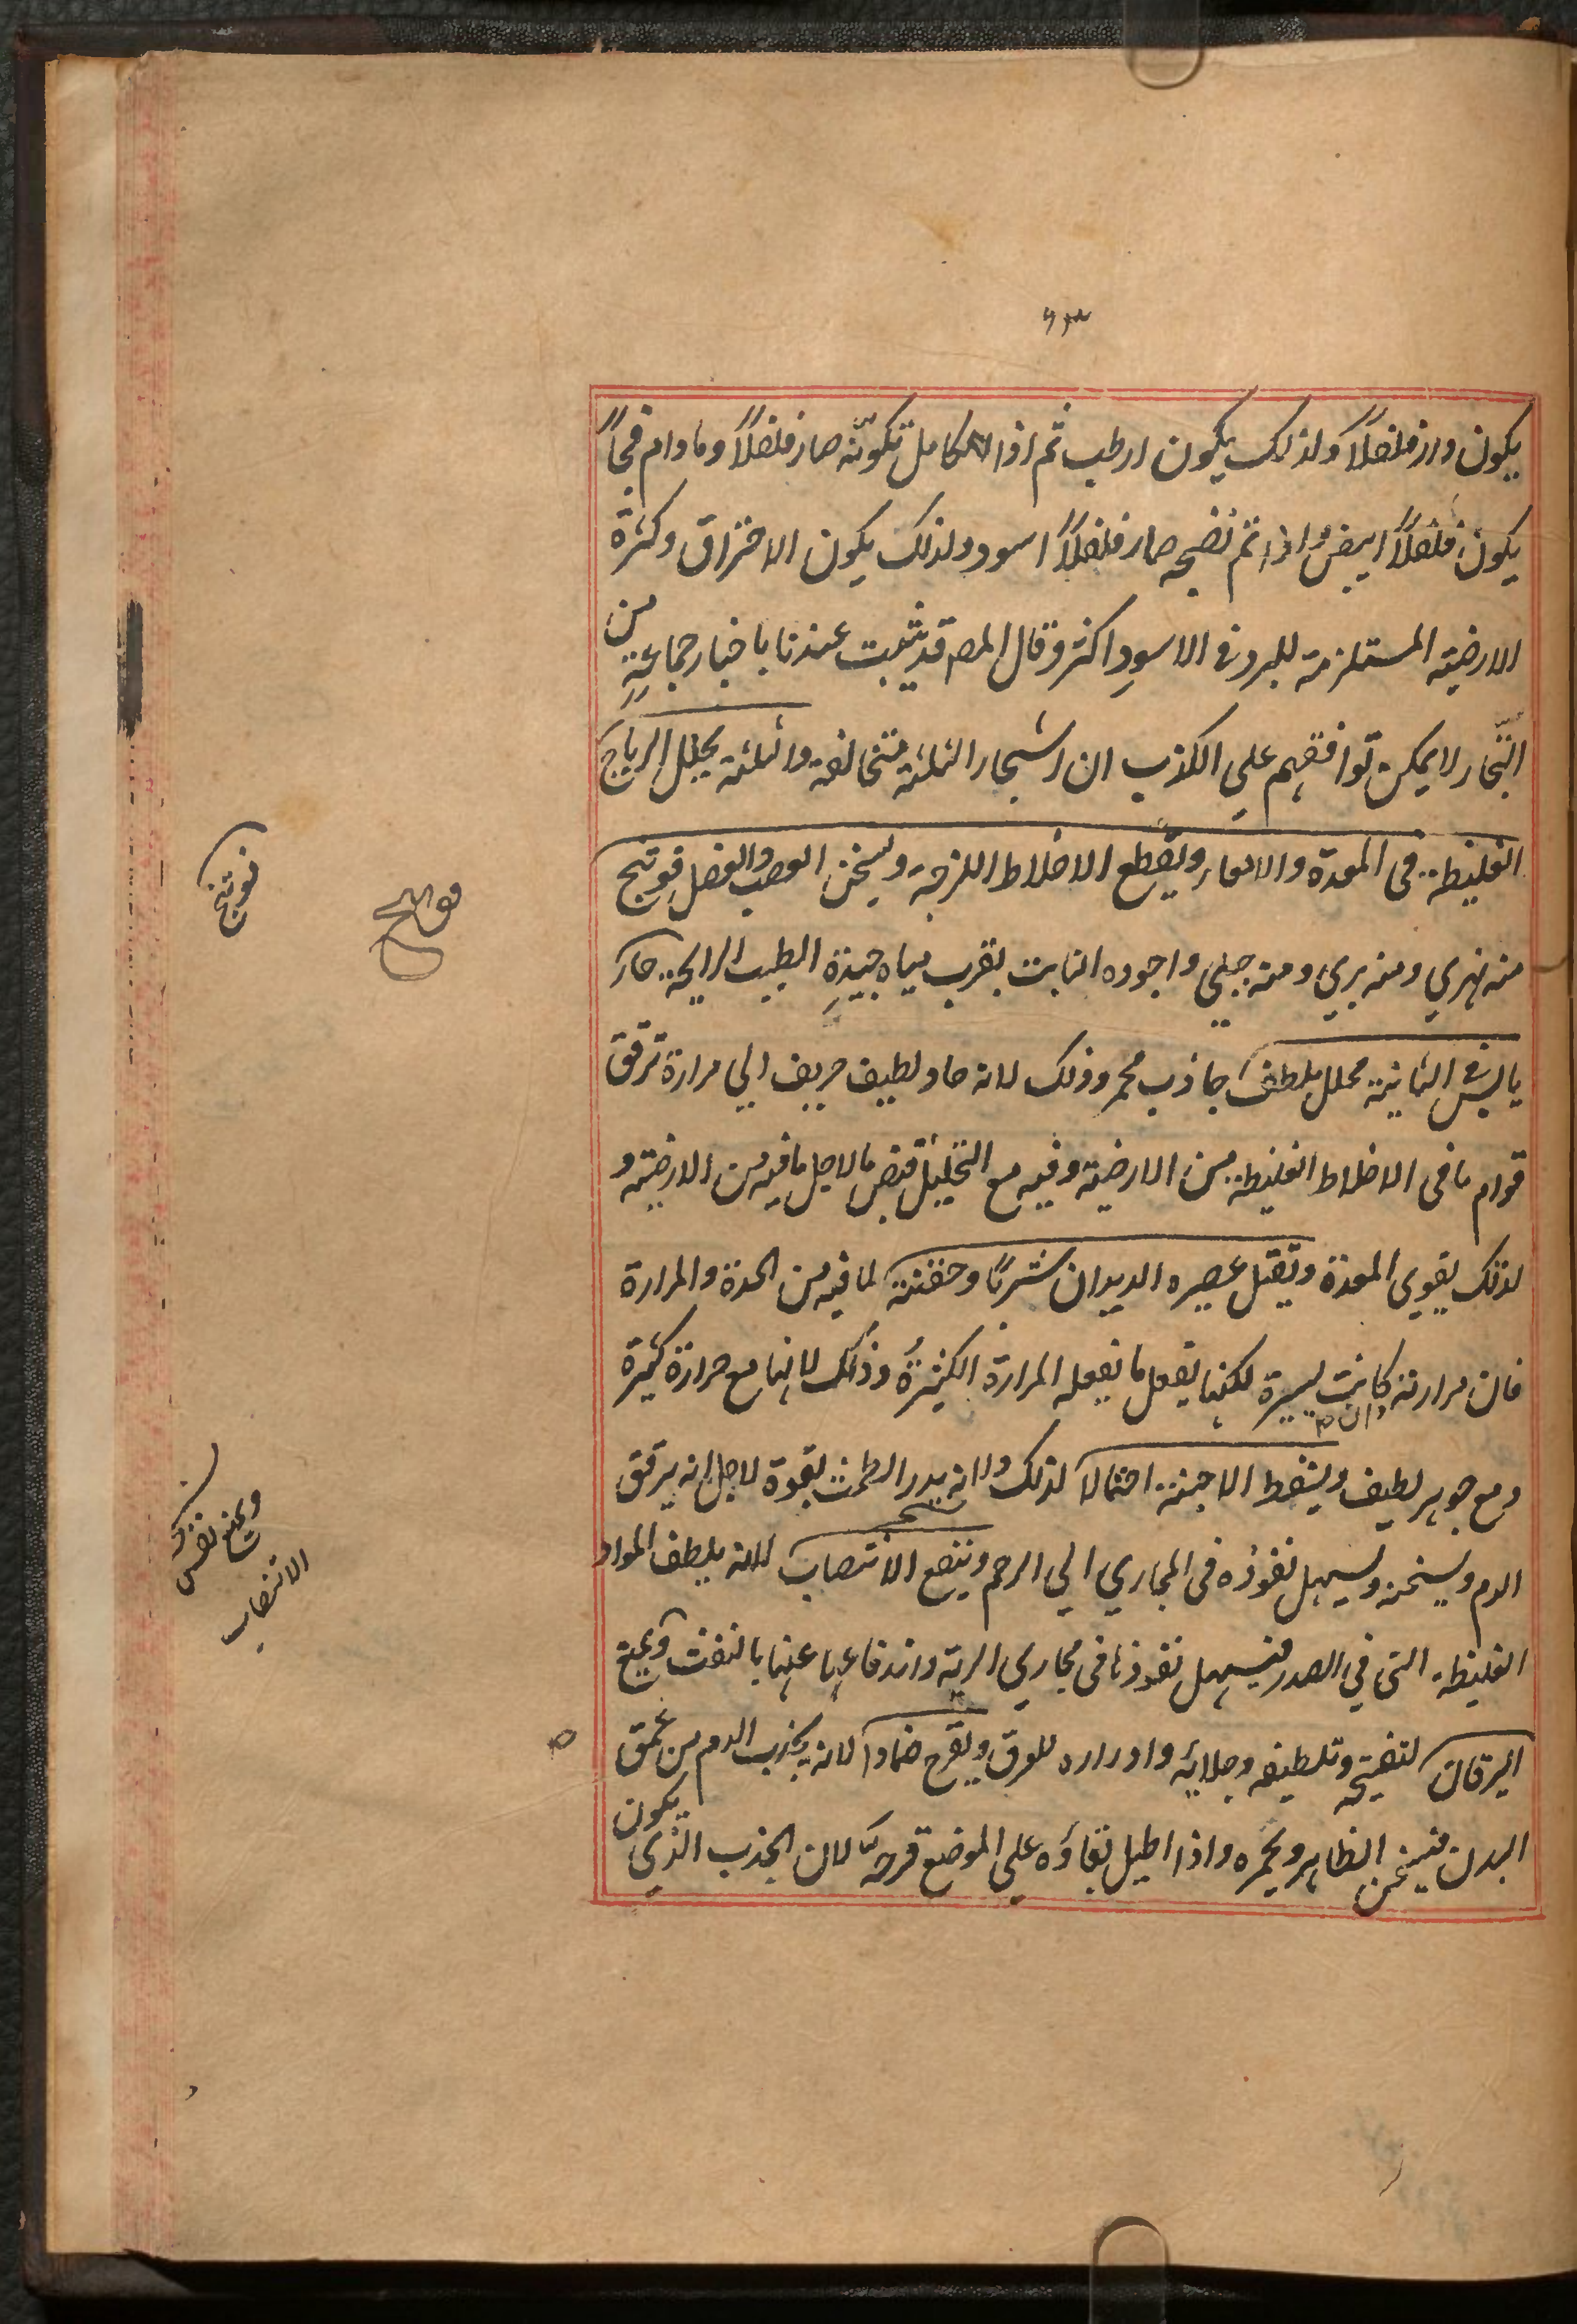 ٦٣
يكون دارفلفلاً ولذلك يكون ارطب ثم اذا كامل تكونّه صار فلفلاً وما دام فجاً
يكون فلفلاً ابيض واذا تم نضجه صار فلفلاً اسود ولذلك يكون الاحتراق وكثرة
الارضية المستلزمة للبرد فى الاسود اكثر وقال المص قد يثبت عندنا باخبار جماعةٍ من
التّجار لا يمكن توافقهم علي الكذب ان اشجار الثلثة متخالفة والثلثة يحلل الرياح
الغليظة فى المعدة والامعاء ويقطع الاخلاط اللزجة ويسخن العصب والعضل فوتنج
منه نهري ومنه بري ومنه جبلي واجوده النابت بقرب مياه جيدةٍ الطيب الرايحة حار
يابس فى الثانية محلل يلطف جاذب محمر وذلك لانه حاد لطيف حريف الي مرارة ترقق
قوام ما فى الاخلاط الغليظة من الارضية وفيه مع التحليل قبض ما لاجل ما فيه من الارضية و
لذلك يقوى المعدة ويقتل عصيره الديدان شربًا وحقنة لما فيه من الحدة والمرارة
فان مرارته وان كانت يسيرة لكنها يفعل ما يفعله المرارة الكثيرة وذلك لانها مع حرارة كثيرة
ومع جوهر لطيف ويسقط الاجنة احتمالا لذلك ولانه يدر الطمث بقوة لاجل انه يرقق
الدم ويسخنه ويسهل نفوذه فى المجاري الي الرحم وينفع الانتصاب لانه يلطف المواد
الغليظة التى في الصدر فيسهل نفوذها فى مجاري الرية واندفاعها عنها بالنفث ويمنع
اليرقان لتفتيحه وتلطيفه وجلائه وادراره للعرق ويقرح ضمادا لانه يجذب الدم من عمق
البدن فيسخن الظاهر ويحمره واذا اطيل بقاؤه علي الموضع قرحه لان الجذب الذي يكون
فوتنج
فوتنج
ويمنع نفس
الانتصاب